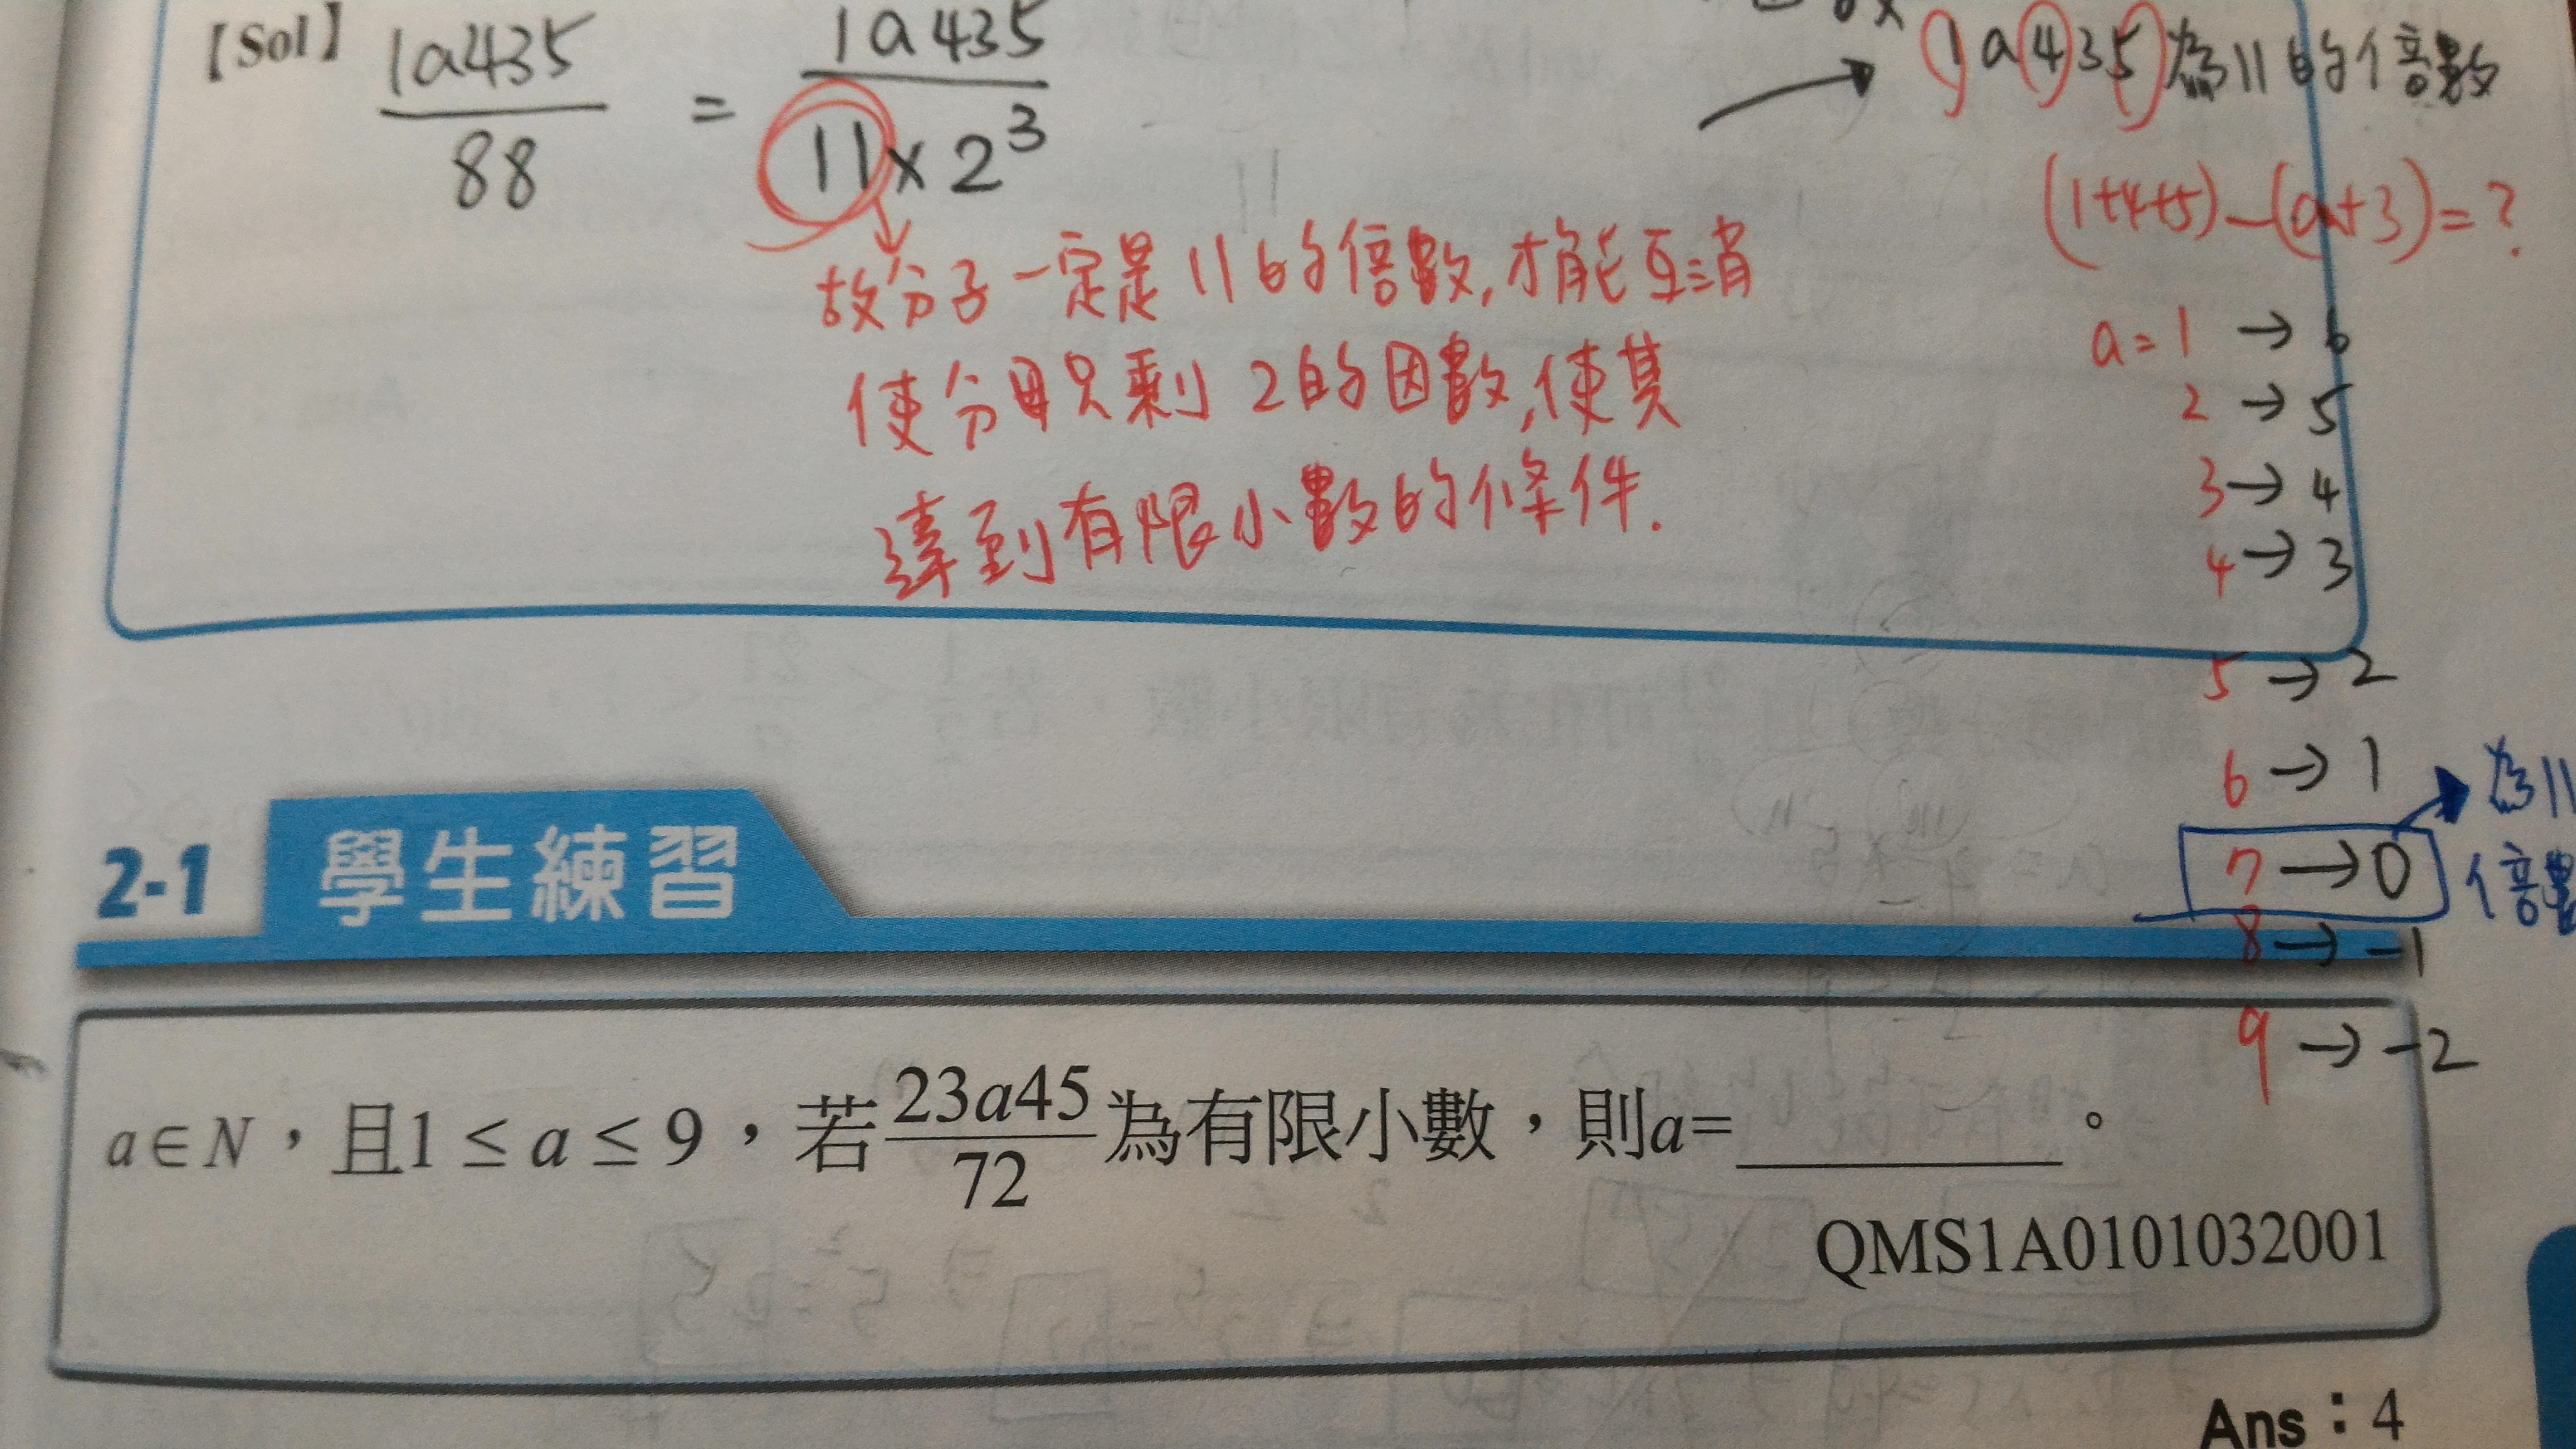 【Sol】 1a435/88 = 1a435/(11×2³)
1a435為11的倍數
(1+4+5)-(a+3)=?
故分子一定是11的倍數,才能互消
使分母只剩2的因數,使其
達到有限小數的條件.
a=1→6
2→5
3→4
4→3
5→2
6→1
7→0 為11倍數
8→-1
9→-2
2-1 學生練習
a∈N，且1≤a≤9，若23a45/72為有限小數，則a=________。
QMS1A0101032001
Ans：4